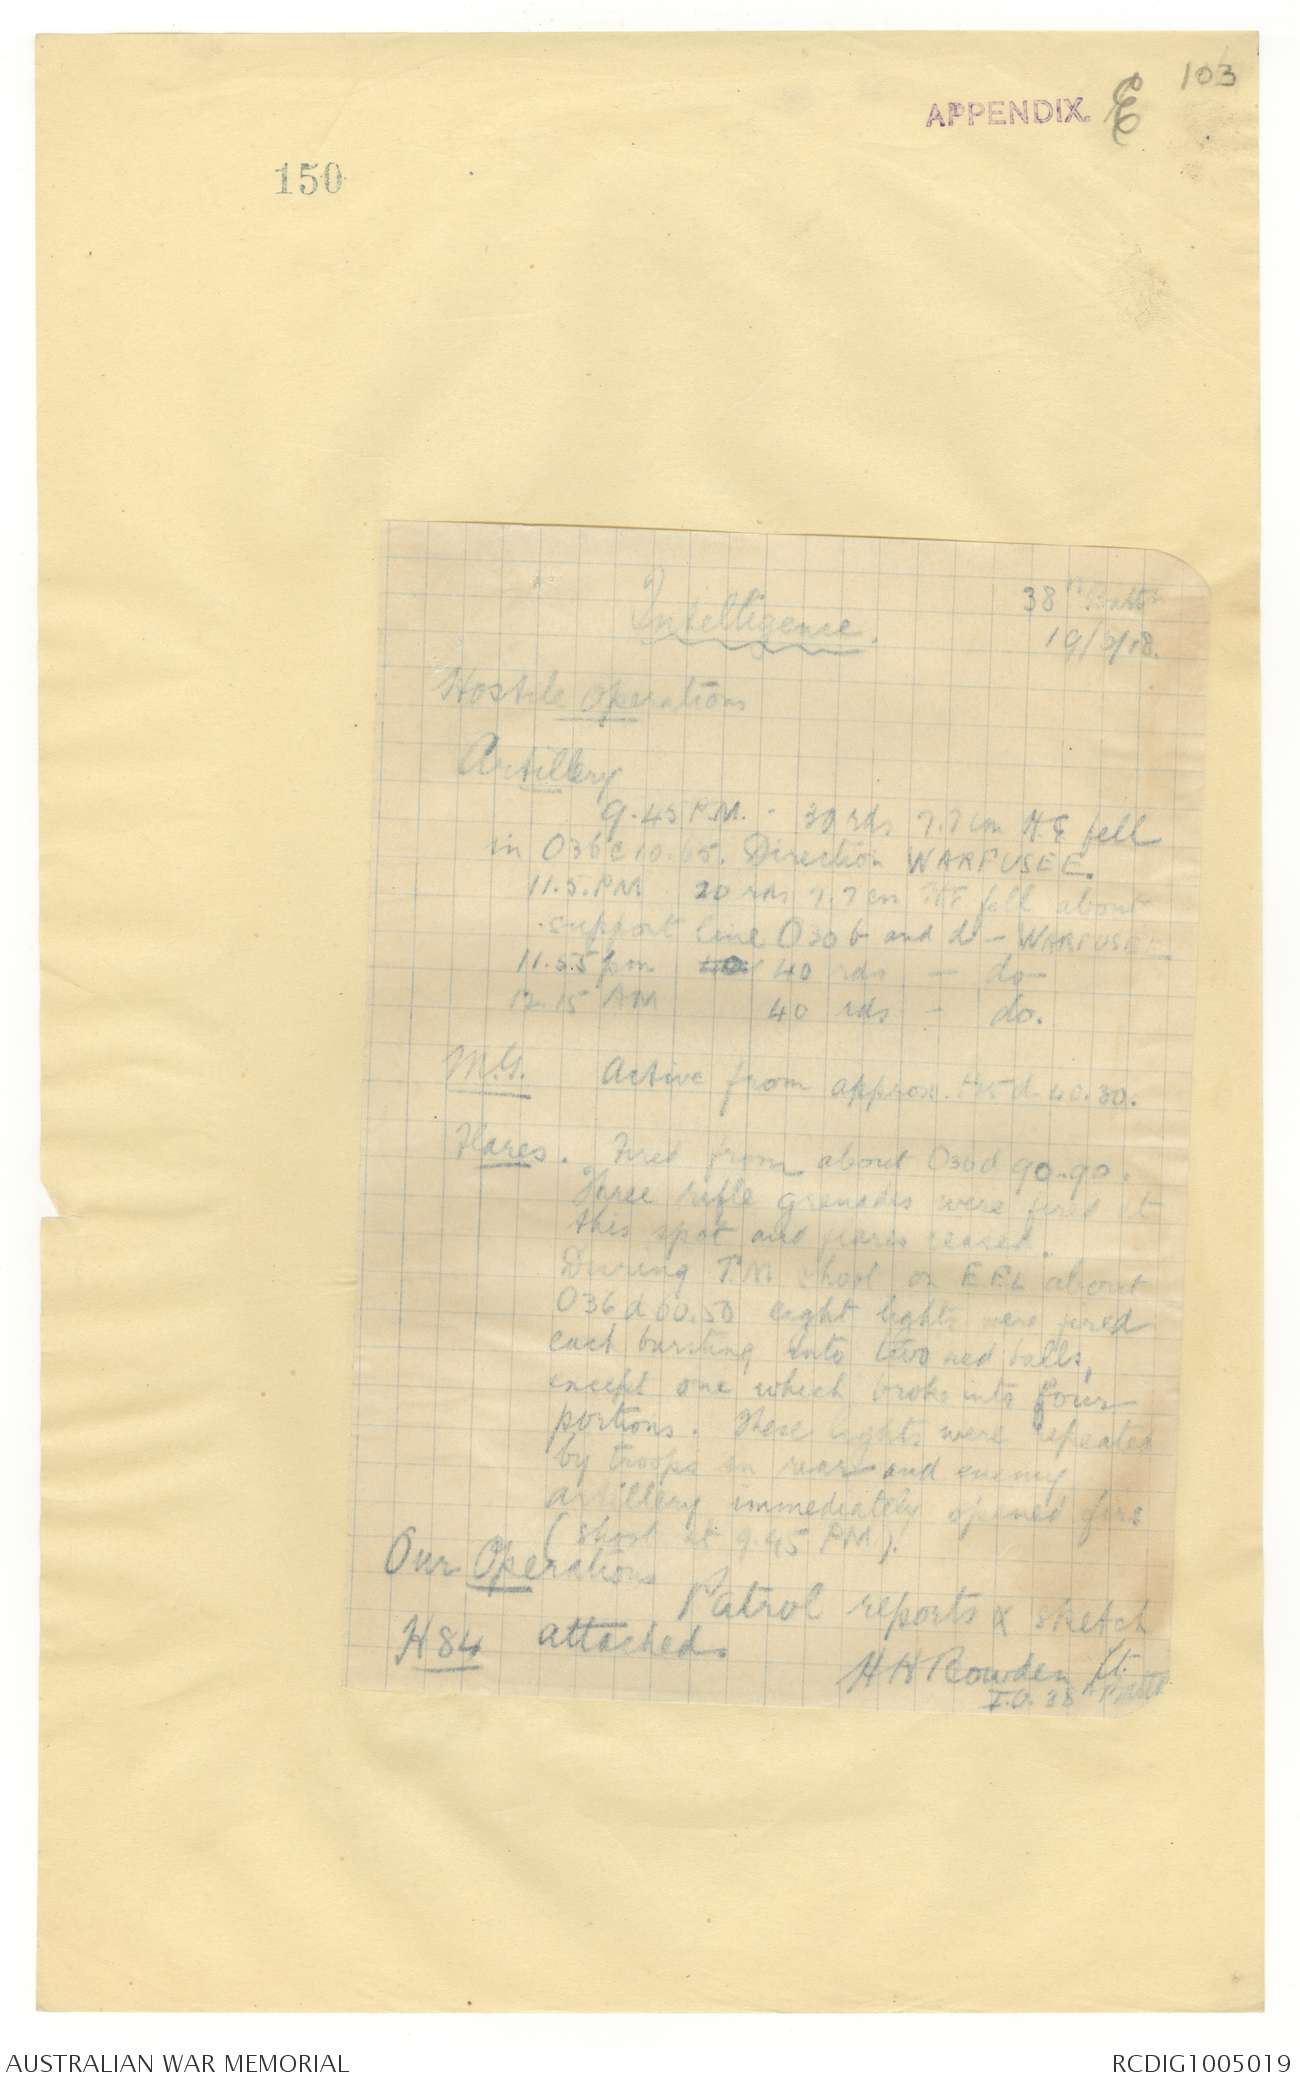 103
APPENDIX. E
150
38th Battn
Intelligence.
19/5/18.
Hostile Operations
Artillery
9.45 P.M. - 30 rds 7.7 cm H.E fell
in O36c10.65. Direction WARFUSEE.
11.5. PM 20 rds 7.7 cm HE fell about
support line O30 b and d - WARFUSEE
11.55 pm 40 40 rds - do
12.15 AM 40 rds - do.
M.G. Active from approx. d 40.30.
Flares. Fired from about O30d 90.90.
Three rifle grenades were fired at
this spot and flares ceased.
During T.M shoot on E.F.L about
O36d 60.50 eight lights were fired
each bursting into two red balls,
except one which broke into four
portions. These lights were repeated
by troops in rear and enemy
artillery immediately opened fire
(Shoot at 9.45 PM).
Our Operations
Patrol reports & sketch
H84 attached.
H H Rowden Lt.
I.O. 38th Battn
AUSTRALIAN WAR MEMORIAL
RCDIG1005019